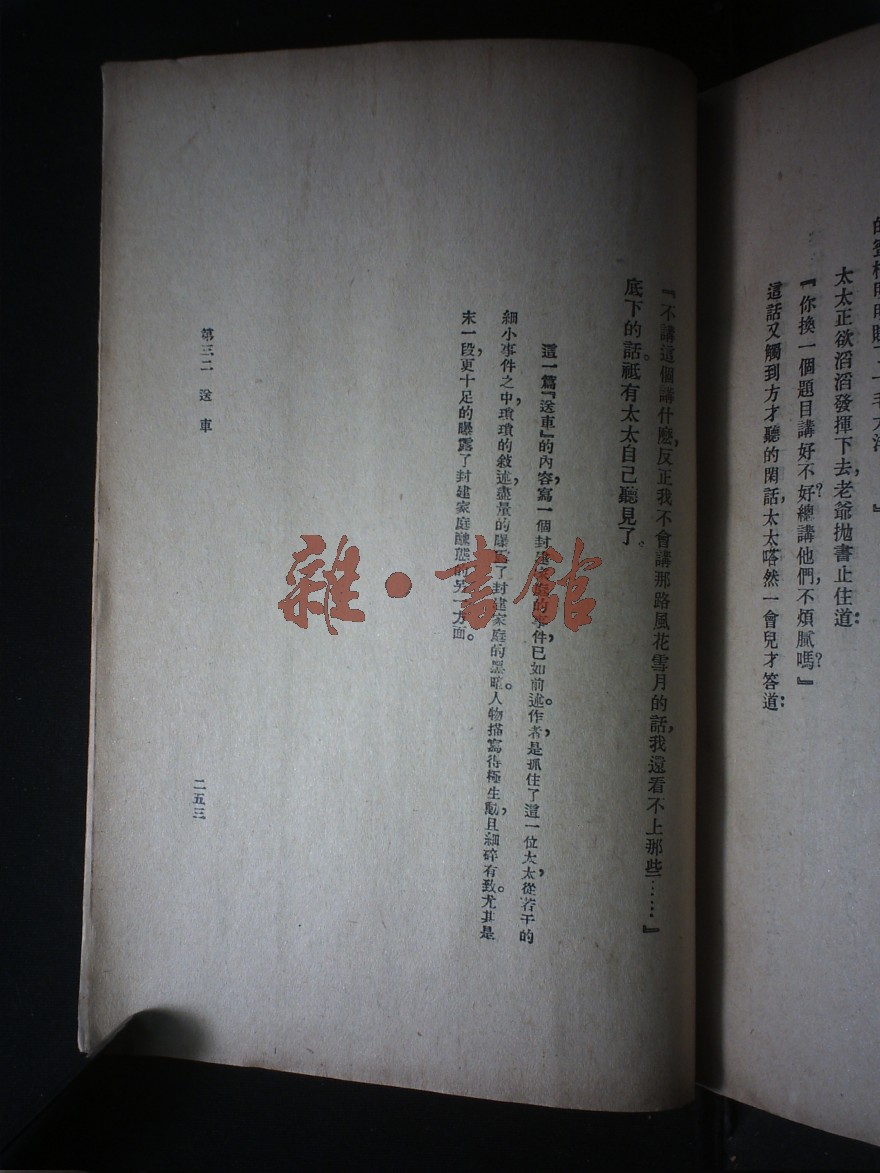 太太正欲滔滔發揮下去，老爺拋書止住道：
『你換一個題目講好不好？總講他們，不煩膩嗎？』
這話又觸到方才聽的閑話，太太喀然一會兒才答道：
『不講這個講什麽，反正我不會講那路風花雪月的話，我還看不上那些……』
底下的話祗有太太自己聽見了。
這一篇『送車』的內容，寫一個封建家庭的事件，已如前述。作者是抓住了這一位太太，從若干的
細小事件之中，瑣瑣的敘述，盡量的曝露了封建家庭的黑暗。人物描寫得極生動，且細碎有致。尤其是
末一段，更十足的曝露了封建家庭醜態的另一方面。
第三二 送車
二五三
雜·書館